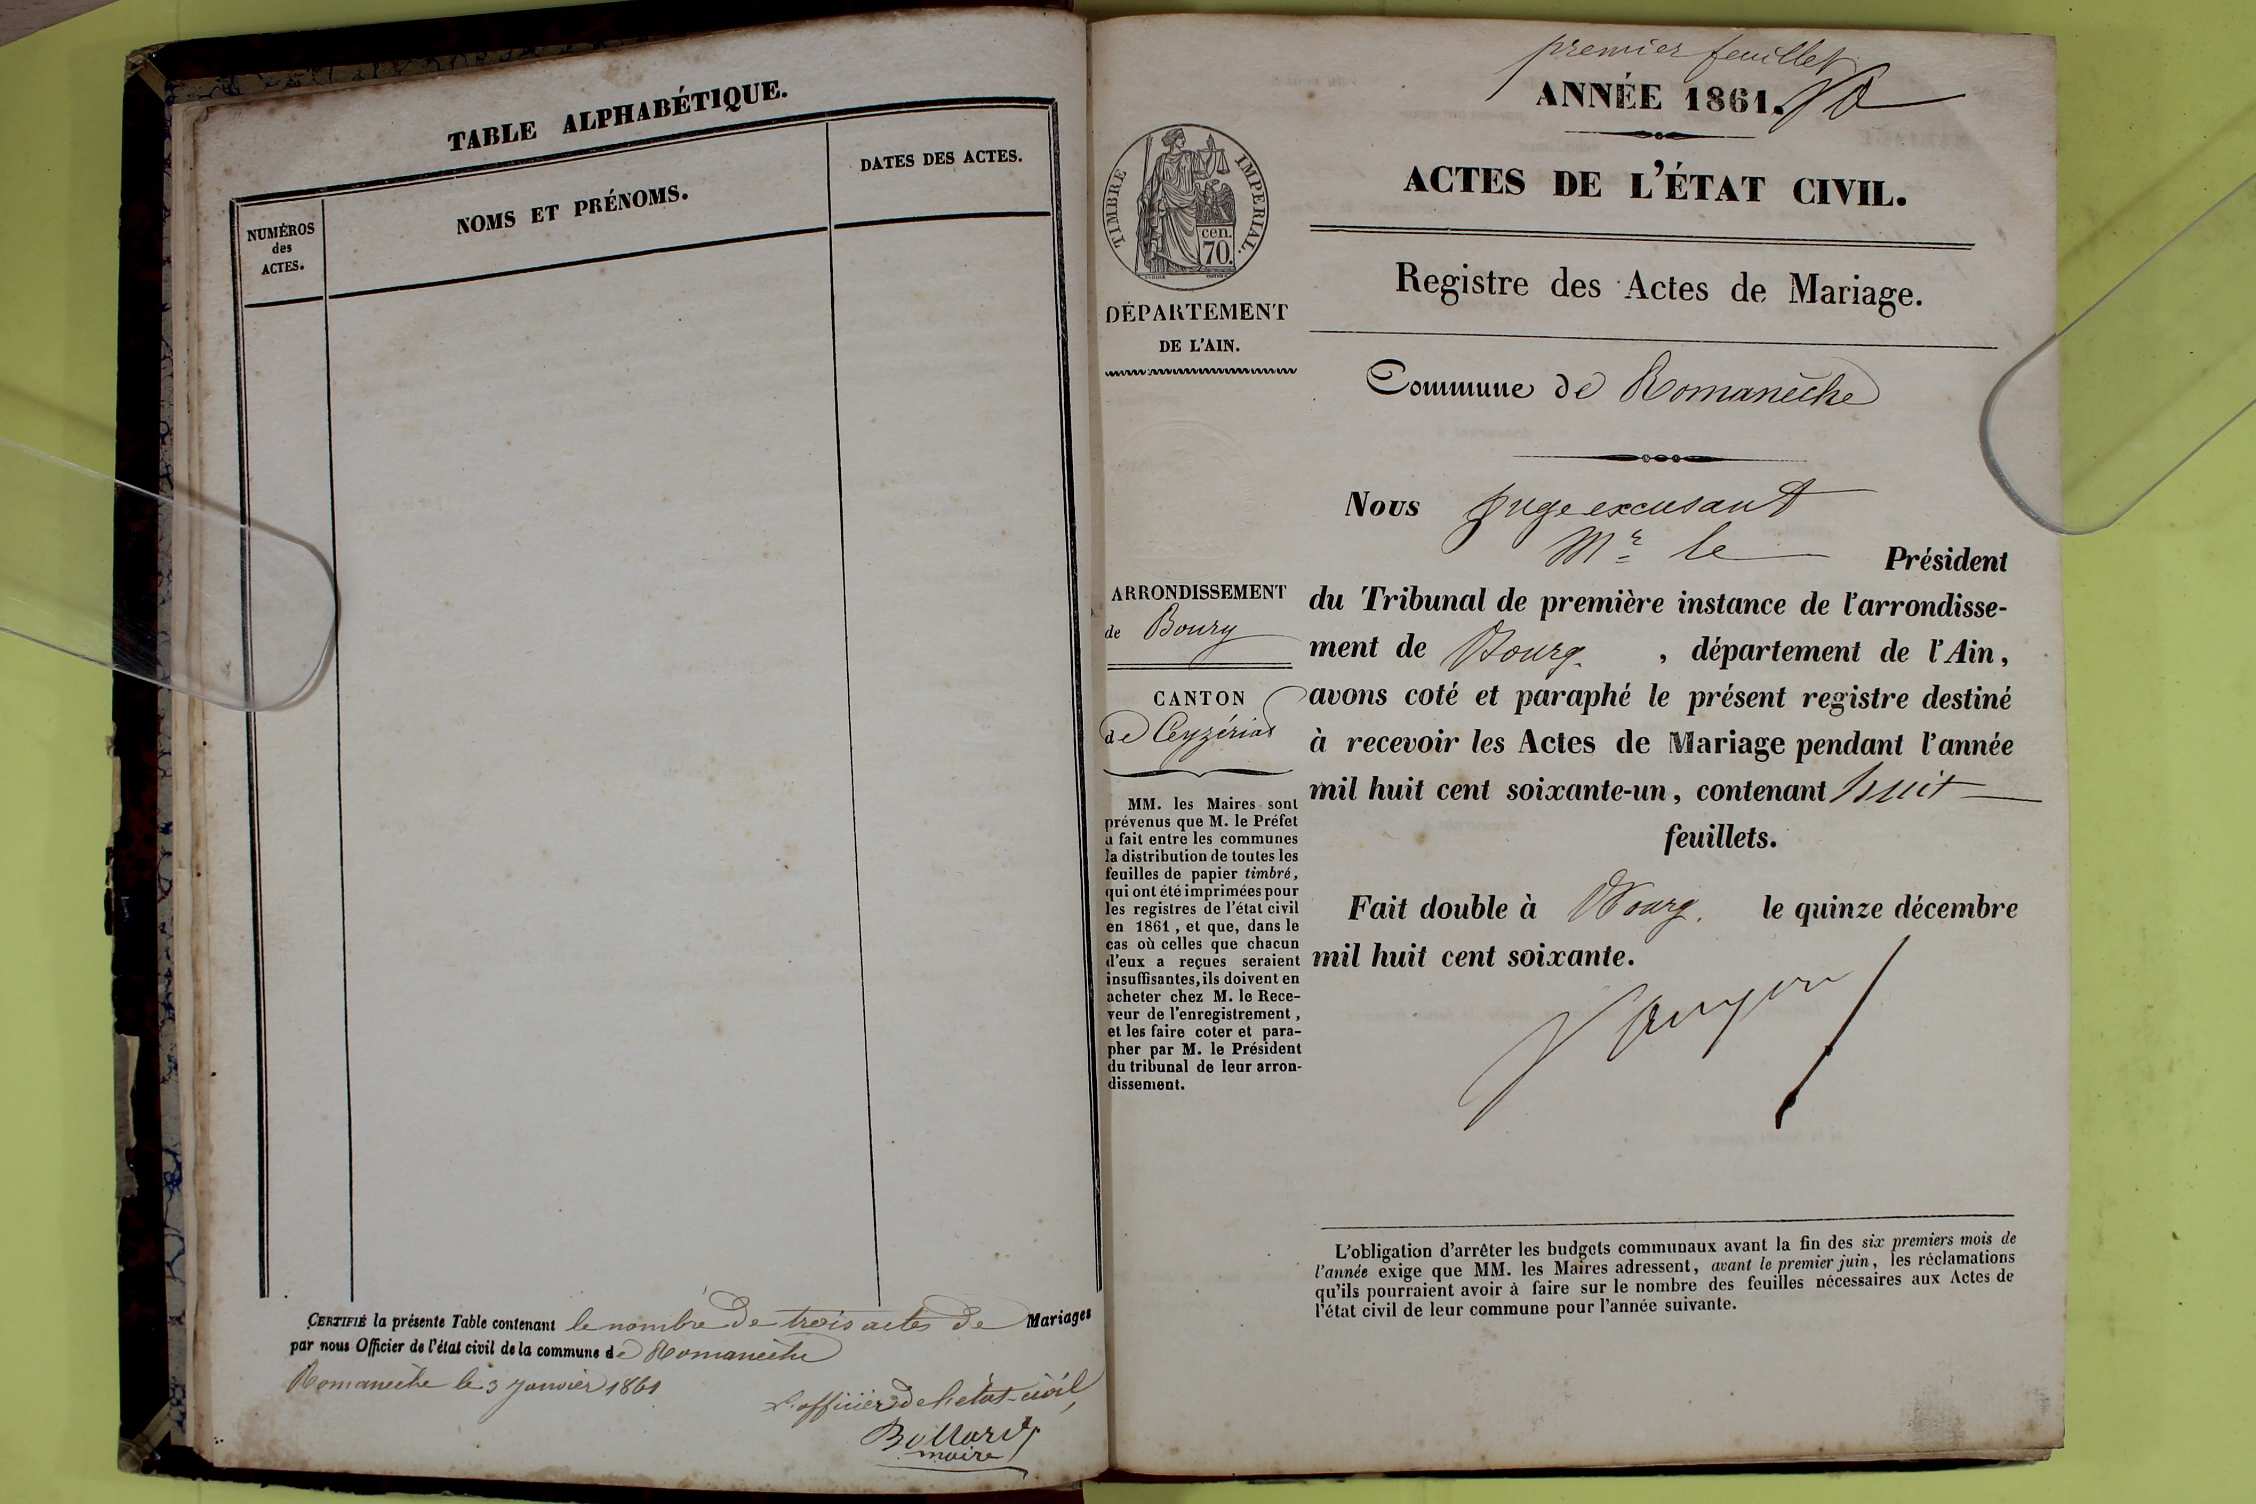 TABLE ALPHABÉTIQUE.
NUMÉROS
des
ACTES.
NOMS ET PRÉNOMS.
DATES DES ACTES.
CERTIFIÉ la présente Table contenant le nombre de trois actes de Mariages
par nous Officier de l'état civil de la commune de Romanèche
Romanèche le 3 Janvier 1861
L'officier de l'état-civil,
maire
premier feuillet
ANNÉE 1861.
ACTES DE L'ÉTAT CIVIL.
TIMBRE IMPERIAL.
cen.
70.
DÉPARTEMENT
DE L'AIN.
Registre des Actes de Mariage.
Commune de Romanèche
Nous juge excusant
Mr le Président
du Tribunal de première instance de l'arrondisse-
ment de Bourg. , département de l'Ain,
avons coté et paraphé le présent registre destiné
à recevoir les Actes de Mariage pendant l'année
mil huit cent soixante-un, contenant huit
feuillets.
Fait double à Bourg. le quinze décembre
mil huit cent soixante.
ARRONDISSEMENT
de Bourg
CANTON
de Ceyzériat
MM. les Maires sont
prévenus que M. le Préfet
a fait entre les communes
la distribution de toutes les
feuilles de papier timbré,
qui ont été imprimées pour
les registres de l'état civil
en 1861, et que, dans le
cas où celles que chacun
d'eux a reçues seraient
insuffisantes, ils doivent en
acheter chez M. le Rece-
veur de l'enregistrement,
et les faire coter et para-
pher par M. le Président
du tribunal de leur arron-
dissement.
L'obligation d'arrêter les budgets communaux avant la fin des six premiers mois de
l'année exige que MM. les Maires adressent, avant le premier juin, les réclamations
qu'ils pourraient avoir à faire sur le nombre des feuilles nécessaires aux Actes de
l'état civil de leur commune pour l'année suivante.